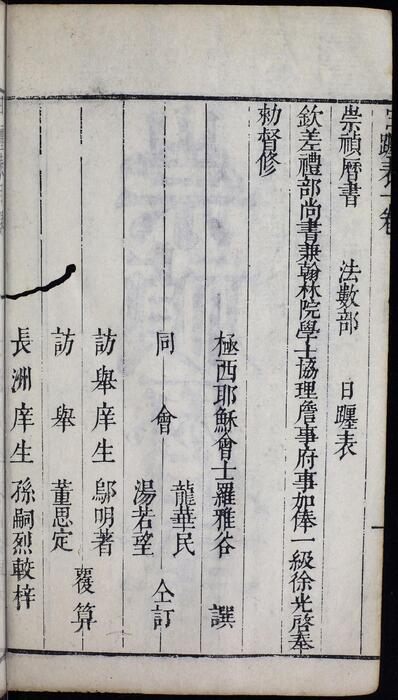 日躔表一卷
崇禎曆書　法數部　日躔表
欽差禮部尚書兼翰林院學士協理詹事府事加俸一級徐光啓奉
勑督修
極西耶穌會士羅雅谷　譔
同會　龍華民
湯若望　仝訂
訪舉庠生　鄔明著
訪舉　董思定　覆算
長洲庠生　孫嗣烈較梓